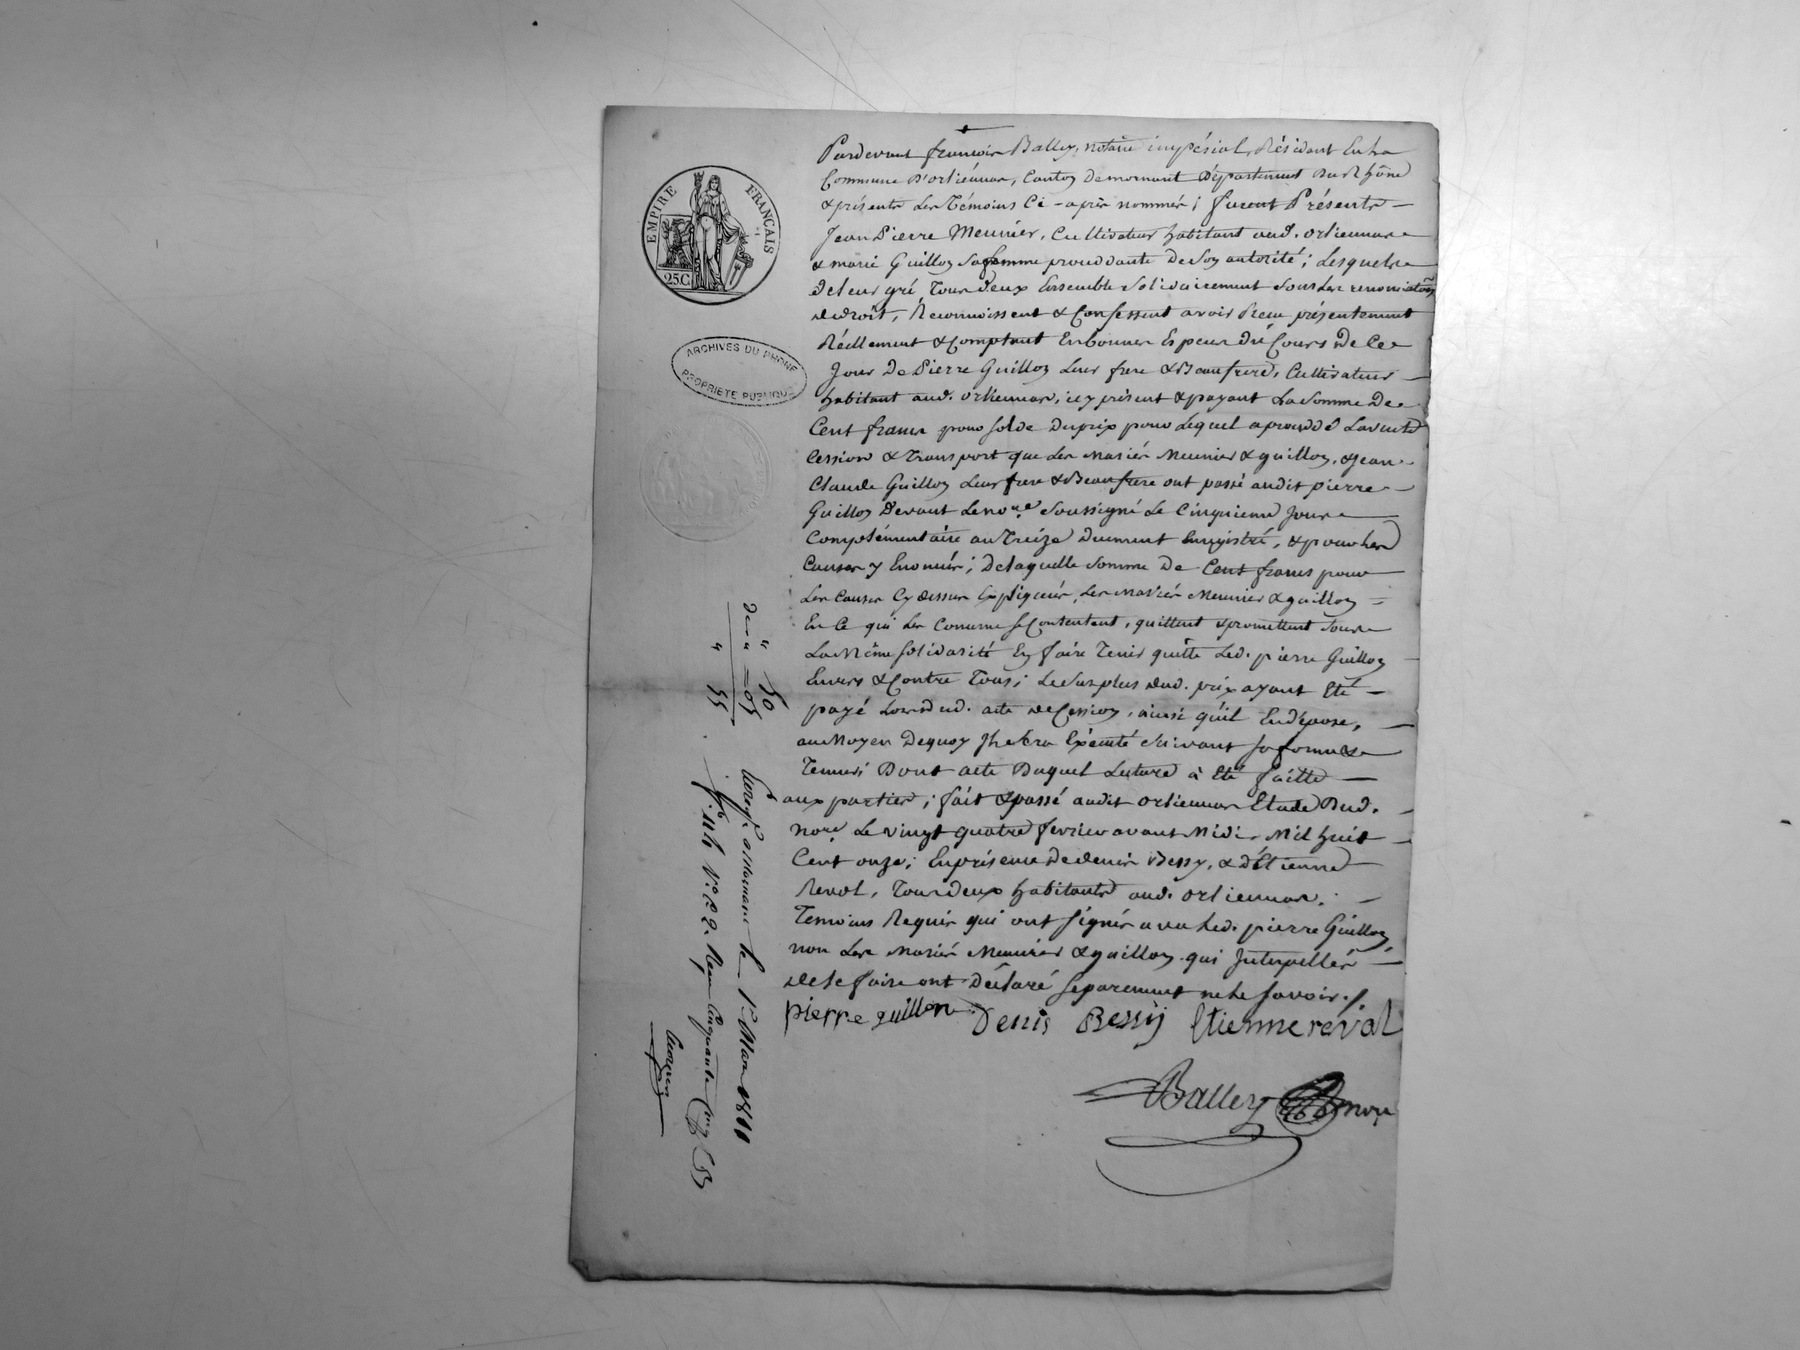 EMPIRE FRANÇAIS
25C
ARCHIVES DU RHONE
PROPRIETE PUBLIQUE
Pardevant francois Balley, notaire impérial, Résidant En La
Commune D'orliénnas, Canton De mornant Département Du Rhône
& présents Les Témoins Ci-après nommés; furent Présents
Jean Pierre Meunier, Cultivateur habitant aud. orliennas
& marie Guillon Sa femme procedante De Son autorité; Lesquels
De leur gré, Tous deux Ensemble Solidairement Sous Les renonciations
de droit, Reconnoissent & Confessent avoir Reçu présentement
Réellement & Comptant En bonnes Espèces du Cours De Ce
Jour De Pierre Guillon Leur frere & Beaufrere, Cultivateur
habitant aud. orliennas, icy présent & payant La Somme De
Cent francs pour Solde Du prix pour Lequel a procédé La vente
Cession & Transport que Les Mariés Meunier & guillon, & Jean
Claude Guillon Leur frere & Beaufrere ont passé audit pierre
Guillon Devant Le nore Soussigné Le Cinquieme Jour
Complémentaire an Treize Duement Enregistré, & pour Les
Causes y Enoncées; De laquelle Somme De Cent francs pour
Les Causes Cy dessus Expliquées, Les Mariés Meunier & guillon
En Ce qui Les Concerne Se Contentent, quittent & promettent Sous
La Même Solidarité En faire Tenir quitte Led. pierre Guillon
Envers & Contre Tous; Le Surplus dud. prix ayant Eté
payé Lors dud. acte de Cession, ainsi qu'il En dépose,
au Moyen De quoy Il Sera Exécuté Suivant Sa forme &
Teneur; Dont acte Duquel Lecture à Eté faitte
aux parties; fait & passé audit orliennas Etude Dud.
nore Le vingt quatre fevrier avant Midi, Mil huit
Cent onze; En présence De denis Bessy, & d'Etienne
Revol, Tous deux habitants aud. orliennas,
Temoins Requis qui ont Signés avec Led. pierre Guillon,
non Les Mariés Meunier & guillon qui Interpellés
de le faire ont Déclaré Séparement ne Le Savoir./.
pierre guillon Denis Bessÿ Etienne reval
Balley nore
50
05
55
Mornant le 1er Mars 1811
Reçu Cinquante Cinq